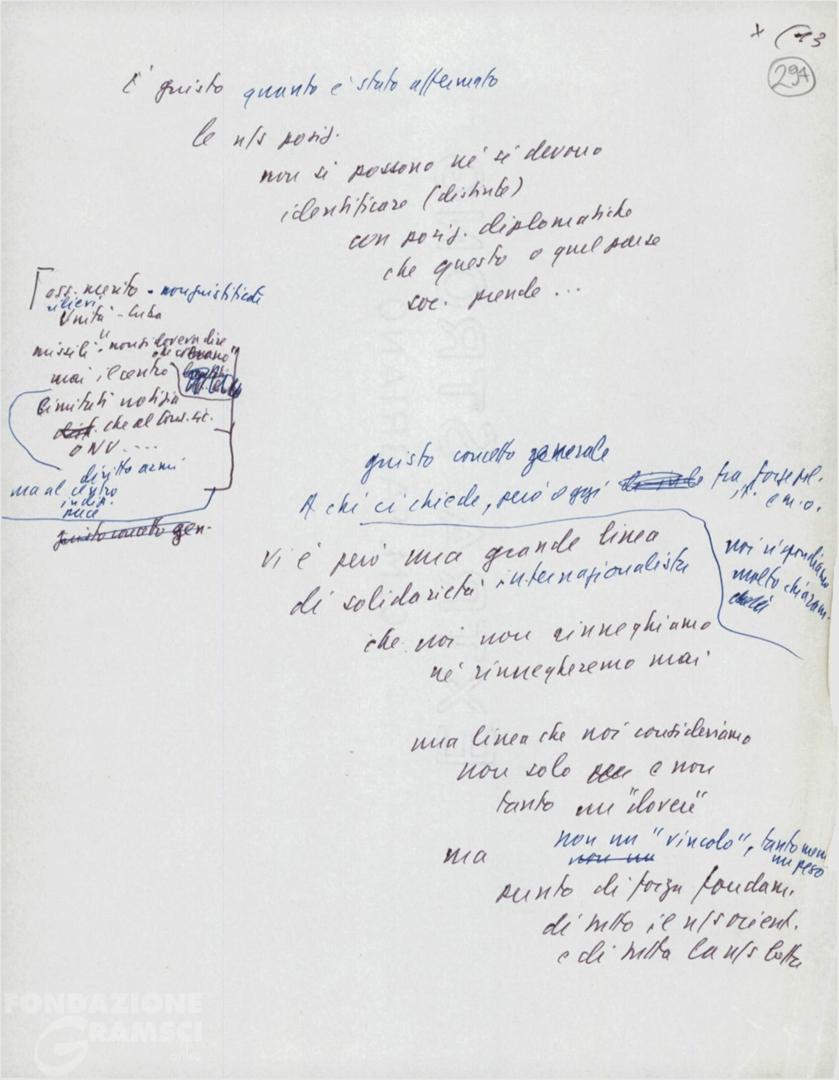 x (13
294
È giusto quanto è stato affermato
le n/s posiz.
non si possono né si devono
identificare (distinte)
con posiz. diplomatiche
che questo o quel paese
soc. prende ...
oss. merito - non giustificate
rilievi
Unità - Cuba
missili "non si doveva dire
che c'erano"
mai il centro
limitati notizia
che al Cons. sic.
ONU ....
diritto armi
ma al centro
indip.
pace
giusto concetto gen.
giusto concetto generale
A chi ci chiede, però oggi tra forze pl.
e m.o.
noi rispondiamo
molto chiaram.
Vi è però una grande linea
di solidarietà internazionalista
che noi non rinneghiamo
né rinnegheremo mai
una linea che noi consideriamo
non solo e non
tanto un "dovere"
non un "vincolo", tanto meno
un peso
ma non un
punto di forza fondam.
di tutto il n/s orient.
e di tutta la n/s lotta
FONDAZIONE
GRAMSCI